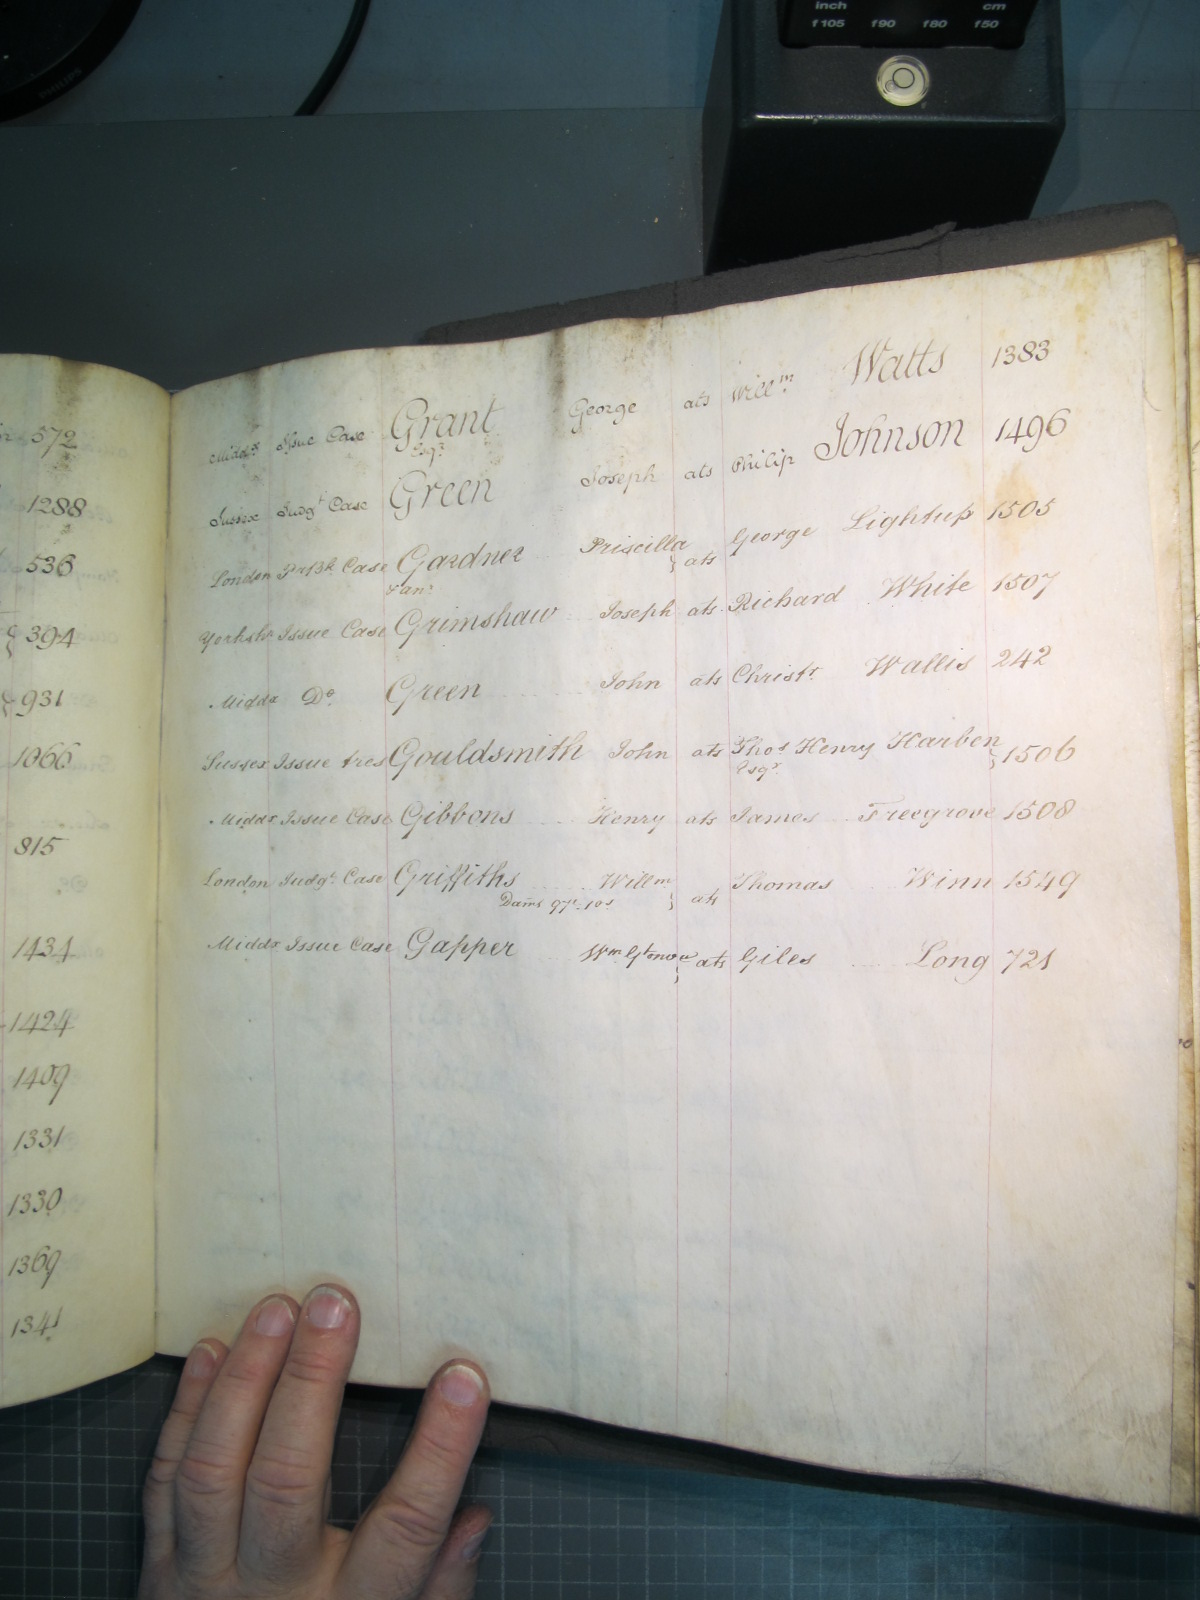 inch cm
f105 f90 f80 f50
PHILIPS
Middx Issue Case Grant George ats Willm Watts 1383
Esqr
Sussex Judgt Case Green Joseph ats Philip Johnson 1496
London Case Gardner Priscilla ats George Lightup 1505
Yorkshr Issue Case Grimshaw Joseph ats Richard White 1507
Middx Do Green John ats Christr Wallis 242
Sussex Issue tres Gouldsmith John ats Thos Henry Harben 1506
Esqr
Middx Issue Case Gibbons Henry ats James Freegrove 1508
London Judgt Case Griffiths Willm ats Thomas Winn 1549
Dams 97l.10s
Middx Issue Case Gapper Wm ats Giles Long 721
572
1288
536
394
931
1066
815
1434
1424
1409
1331
1330
1369
1341